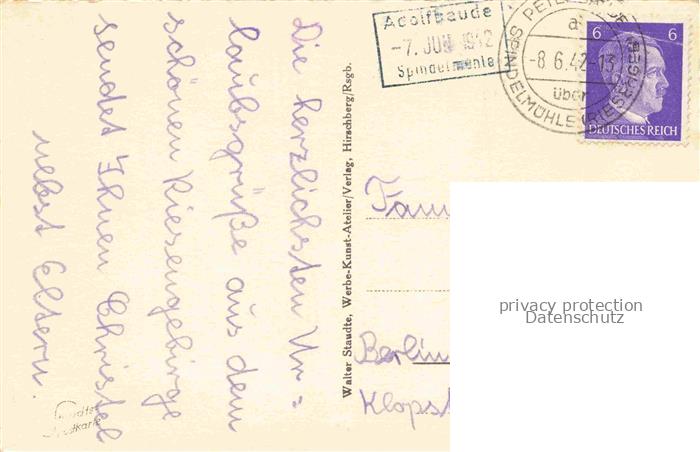 Die herzlichsten Ur=
laubsgrüße aus dem
schönen Riesengebirge
sendet Ihnen Christel
nebst Eltern.
Walter Staudte, Werbe-Kunst-Atelier/Verlag, Hirschberg/Rsgb.
Adolfbaude
-7. JUNI 1942
Spindelmühle
-8.6.42-13
über
SPINDELMÜHLE (RIESENGEB)
6 6
DEUTSCHES REICH
Fam
Berlin
Klopst
privacy protection
Datenschutz